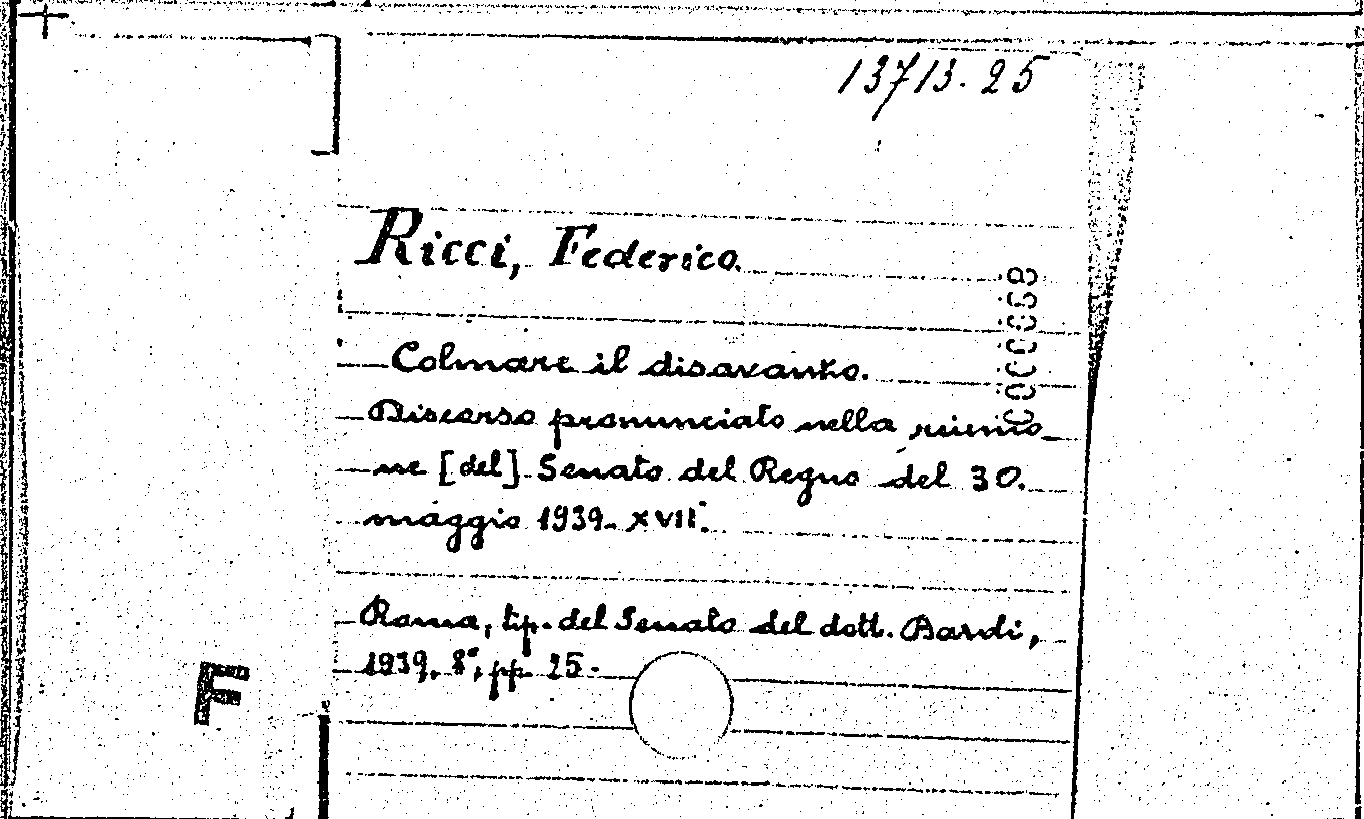 13713.25
Ricci, Federico.
Colmare il disavanzo.
Discorso pronunciato nella riunio-
ne [del] Senato del Regno del 30.
maggio 1939-XVII.
Roma, tip. del Senato del dott. Bardi,
1939, 8°, pp. 25.
F